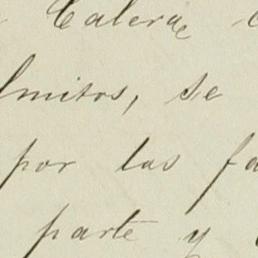 Calera
lmitos, se
por las fa
parte y